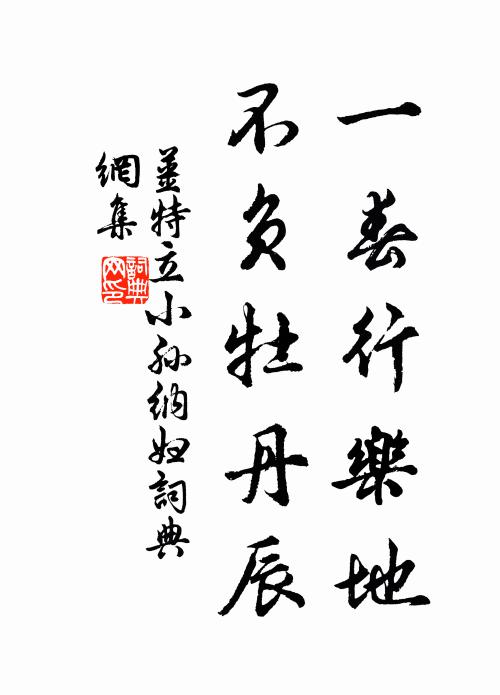 一春行樂地
不負牡丹辰
姜特立小孫納婦詞典
網集
詞典
網印